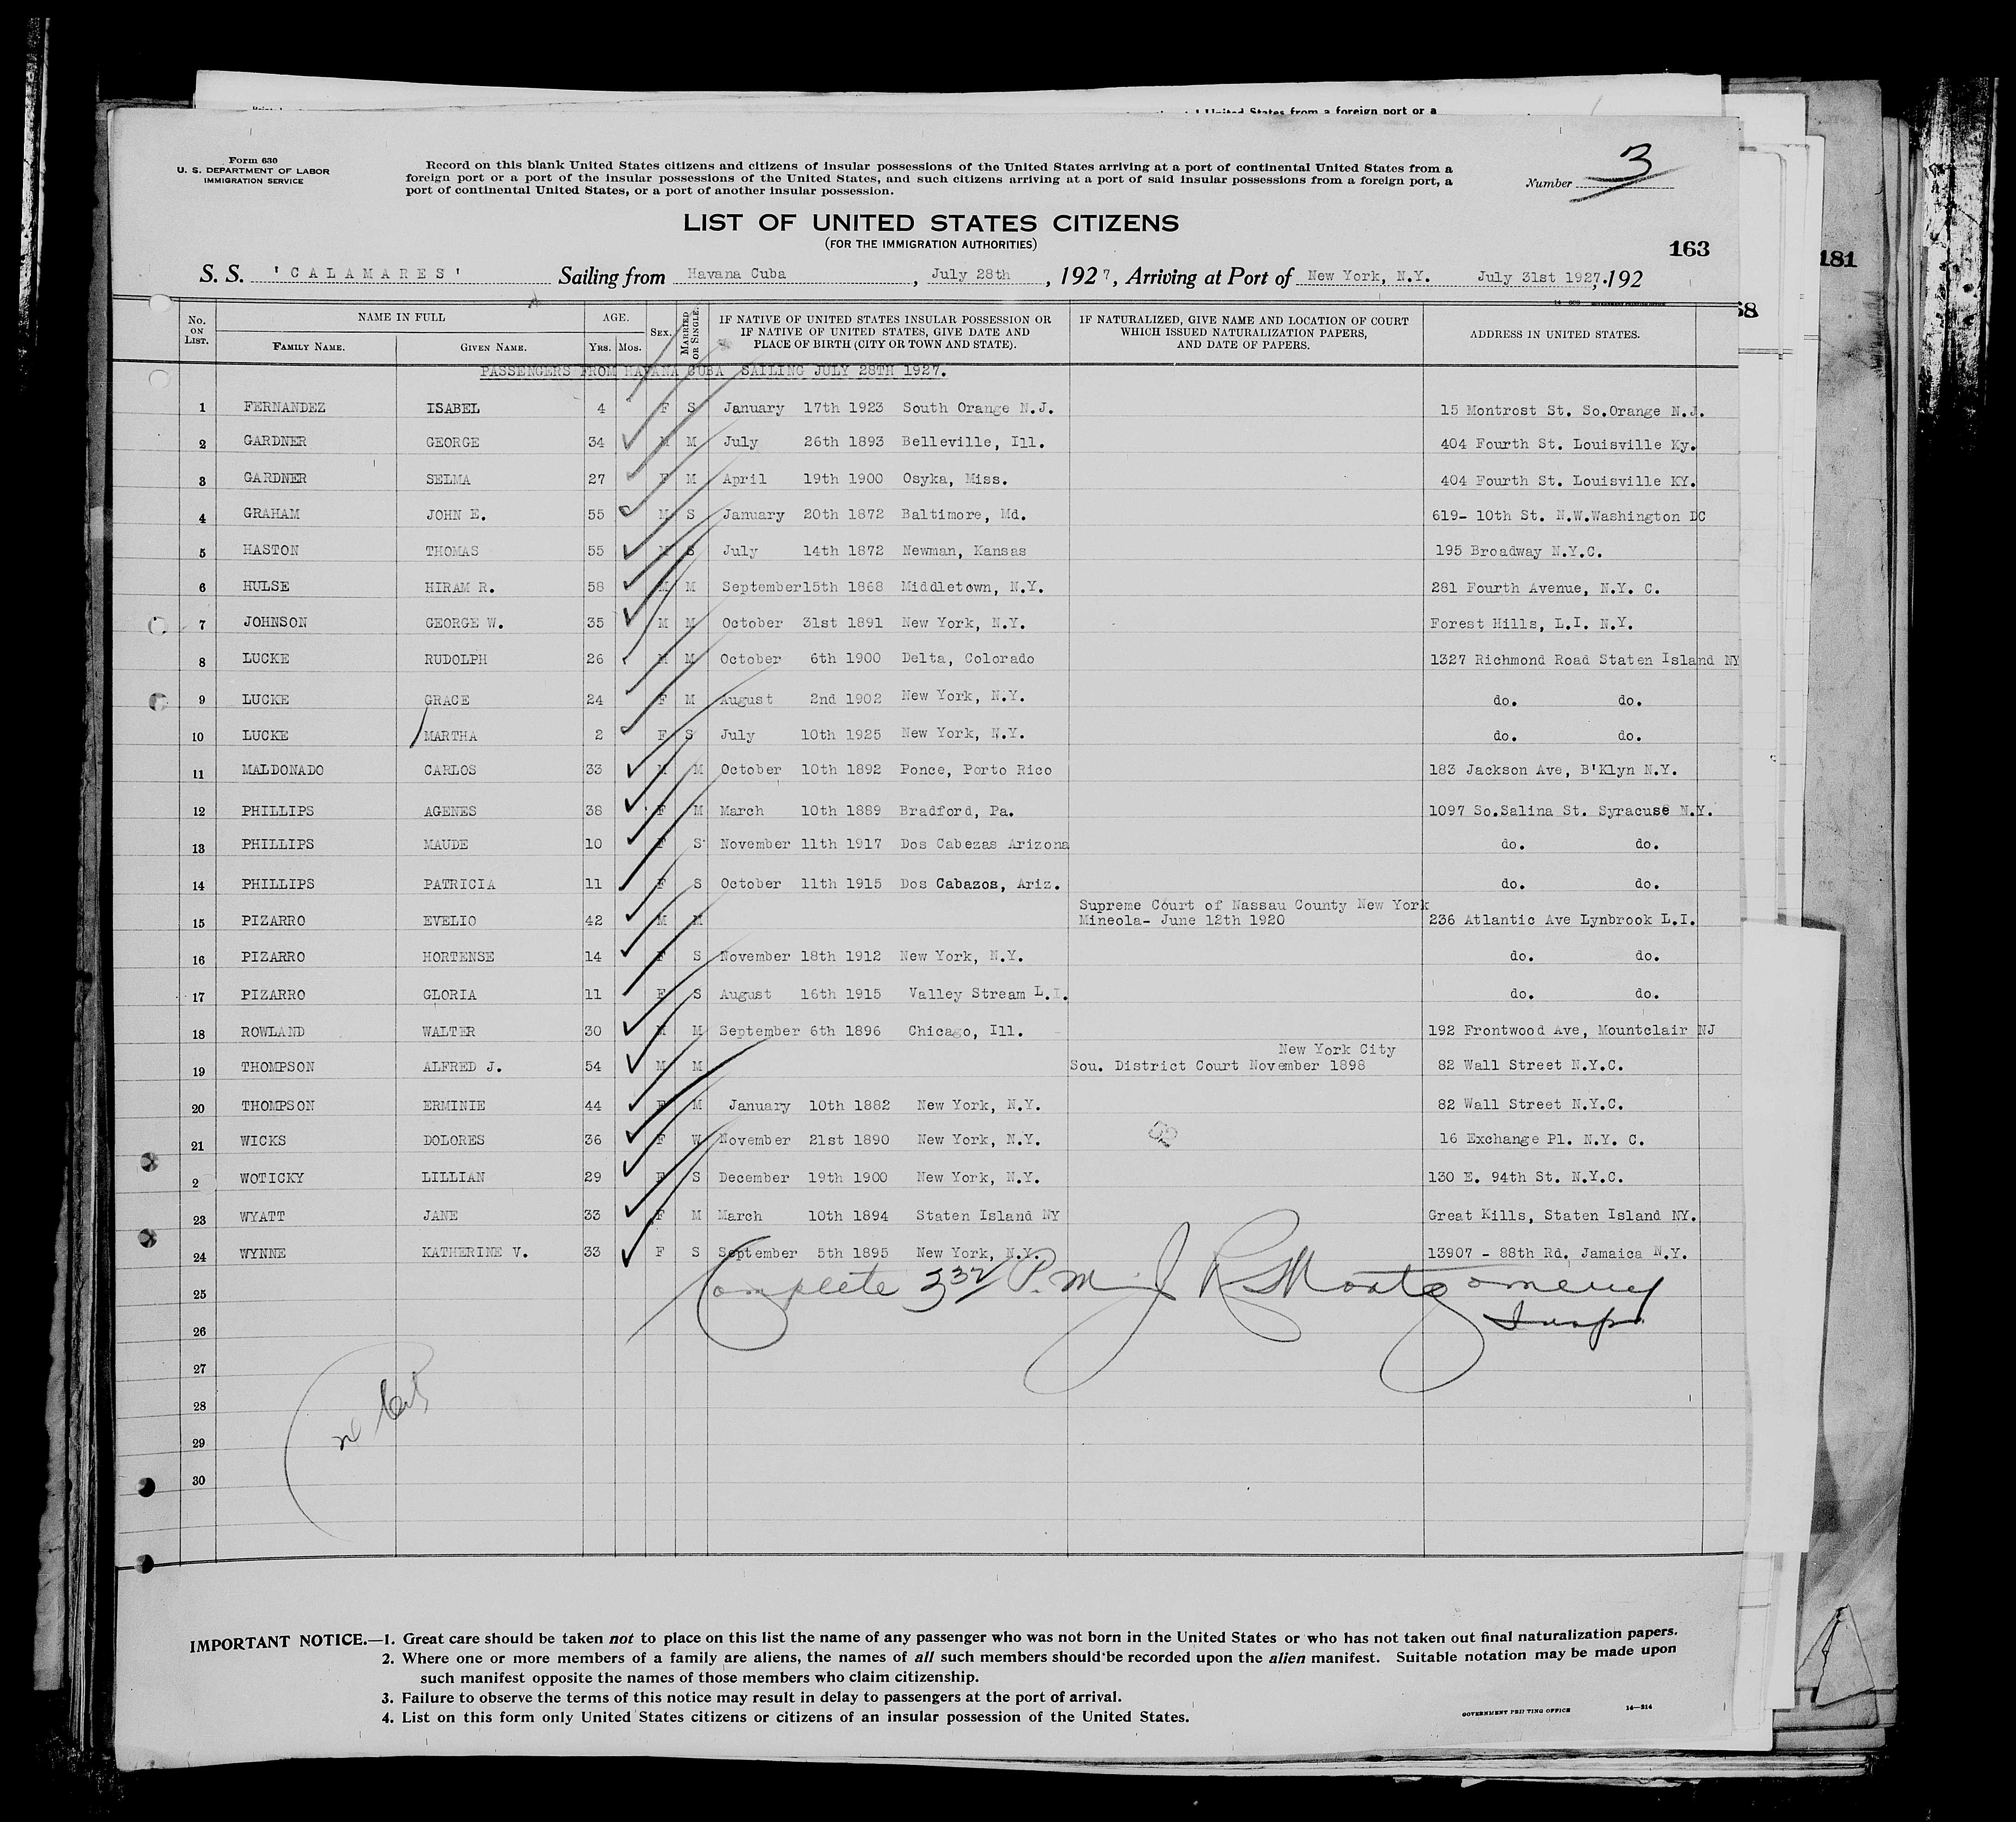 United States from a foreign port or a
Form 630
U. S. DEPARTMENT OF LABOR
IMMIGRATION SERVICE
Record on this blank United States citizens and citizens of insular possessions of the United States arriving at a port of continental United States from a
foreign port or a port of the insular possessions of the United States, and such citizens arriving at a port of said insular possessions from a foreign port, a
port of continental United States, or a port of another insular possession.
Number 3
LIST OF UNITED STATES CITIZENS
(FOR THE IMMIGRATION AUTHORITIES)
163
181
S. S. 'CALAMARES' Sailing from Havana Cuba, July 28th, 1927, Arriving at Port of New York, N.Y. July 31st 1927., 192
68
No. ON LIST. NAME IN FULL AGE. SEX. MARRIED OR SINGLE. IF NATIVE OF UNITED STATES INSULAR POSSESSION OR IF NATIVE OF UNITED STATES, GIVE DATE AND PLACE OF BIRTH (CITY OR TOWN AND STATE). IF NATURALIZED, GIVE NAME AND LOCATION OF COURT WHICH ISSUED NATURALIZATION PAPERS, AND DATE OF PAPERS. ADDRESS IN UNITED STATES.
FAMILY NAME. GIVEN NAME. YRS. MOS.
PASSENGERS FROM HAVANA CUBA SAILING JULY 28TH 1927.
1 FERNANDEZ ISABEL 4 F S January 17th 1923 South Orange N.J. 15 Montrost St. So.Orange N.J.
2 GARDNER GEORGE 34 M M July 26th 1893 Belleville, Ill. 404 Fourth St. Louisville Ky.
3 GARDNER SELMA 27 F M April 19th 1900 Osyka, Miss. 404 Fourth St. Louisville KY.
4 GRAHAM JOHN E. 55 M S January 20th 1872 Baltimore, Md. 619- 10th St. N.W.Washington DC
5 HASTON THOMAS 55 M S July 14th 1872 Newman, Kansas 195 Broadway N.Y.C.
6 HULSE HIRAM R. 58 M M September15th 1868 Middletown, N.Y. 281 Fourth Avenue, N.Y. C.
7 JOHNSON GEORGE W. 35 M M October 31st 1891 New York, N.Y. Forest Hills, L.I. N.Y.
8 LUCKE RUDOLPH 26 M M October 6th 1900 Delta, Colorado 1327 Richmond Road Staten Island NY
9 LUCKE GRACE 24 F M August 2nd 1902 New York, N.Y. do. do.
10 LUCKE MARTHA 2 F S July 10th 1925 New York, N.Y. do. do.
11 MALDONADO CARLOS 33 M M October 10th 1892 Ponce, Porto Rico 183 Jackson Ave, B'Klyn N.Y.
12 PHILLIPS AGENES 38 F M March 10th 1889 Bradford, Pa. 1097 So.Salina St. Syracuse N.Y.
13 PHILLIPS MAUDE 10 F S November 11th 1917 Dos Cabezas Arizona do. do.
14 PHILLIPS PATRICIA 11 F S October 11th 1915 Dos Cabazos, Ariz. do. do.
Supreme Court of Nassau County New York
15 PIZARRO EVELIO 42 M M Mineola- June 12th 1920 236 Atlantic Ave Lynbrook L.I.
16 PIZARRO HORTENSE 14 F S November 18th 1912 New York, N.Y. do. do.
17 PIZARRO GLORIA 11 F S August 16th 1915 Valley Stream L.I. do. do.
18 ROWLAND WALTER 30 M M September 6th 1896 Chicago, Ill. 192 Frontwood Ave, Mountclair NJ
New York City
19 THOMPSON ALFRED J. 54 M M Sou. District Court November 1898 82 Wall Street N.Y.C.
20 THOMPSON ERMINIE 44 F M January 10th 1882 New York, N.Y. 82 Wall Street N.Y.C.
21 WICKS DOLORES 36 F W November 21st 1890 New York, N.Y. 16 Exchange Pl. N.Y. C.
2 WOTICKY LILLIAN 29 F S December 19th 1900 New York, N.Y. 130 E. 94th St. N.Y.C.
23 WYATT JANE 33 F M March 10th 1894 Staten Island NY Great Kills, Staten Island NY.
24 WYNNE KATHERINE V. 33 F S September 5th 1895 New York, N.Y. 13907 - 88th Rd. Jamaica N.Y.
25 Complete 3 32 P.M. J R Montgomery
Insp.
26
27
28
29
30
IMPORTANT NOTICE.—1. Great care should be taken not to place on this list the name of any passenger who was not born in the United States or who has not taken out final naturalization papers.
2. Where one or more members of a family are aliens, the names of all such members should be recorded upon the alien manifest. Suitable notation may be made upon
such manifest opposite the names of those members who claim citizenship.
3. Failure to observe the terms of this notice may result in delay to passengers at the port of arrival.
4. List on this form only United States citizens or citizens of an insular possession of the United States.
GOVERNMENT PRINTING OFFICE 14—214